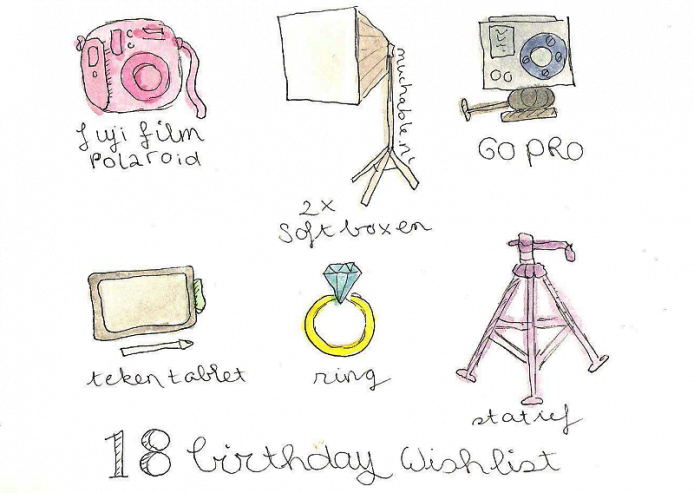 fuji film
polaroid
muchable.nl
2x
Soft boxen
GO PRO
teken tablet
ring
statief
18 birthday Wishlist